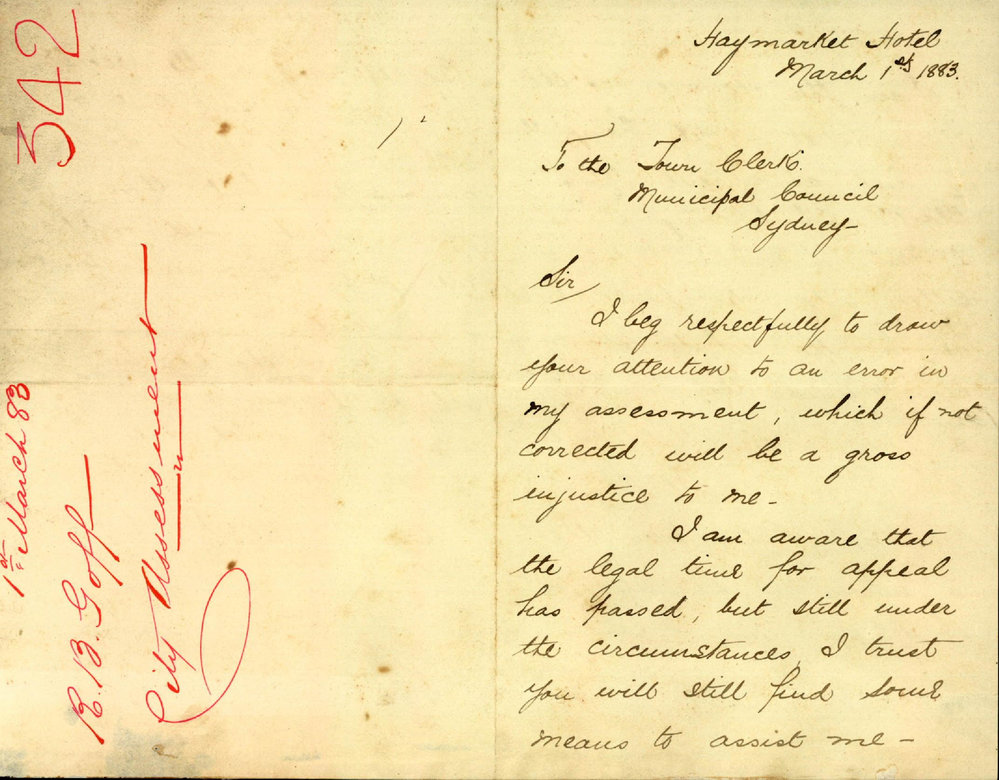 342
1st March 83
R. B. Goff
City Assessment
Haymarket Hotel
March 1st 1883.
To the Town Clerk.
Municipal Council
Sydney—
Sir,
I beg respectfully to draw
your attention to an error in
my assessment, which if not
corrected will be a gross
injustice to me—
I am aware that
the legal time for appeal
has passed, but still under
the circumstances, I trust
you will still find some
means to assist me—